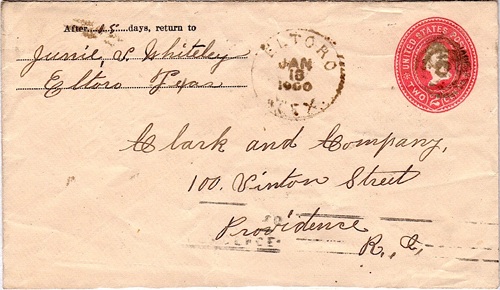 After 15 days, return to
Junie, S. Whiteley
Eltoro Texas
ELTORO
JAN
18
1900
TEX.
UNITED STATES
TWO CENTS
Clark and Company,
100. Vinton Street
Providence
R. I.